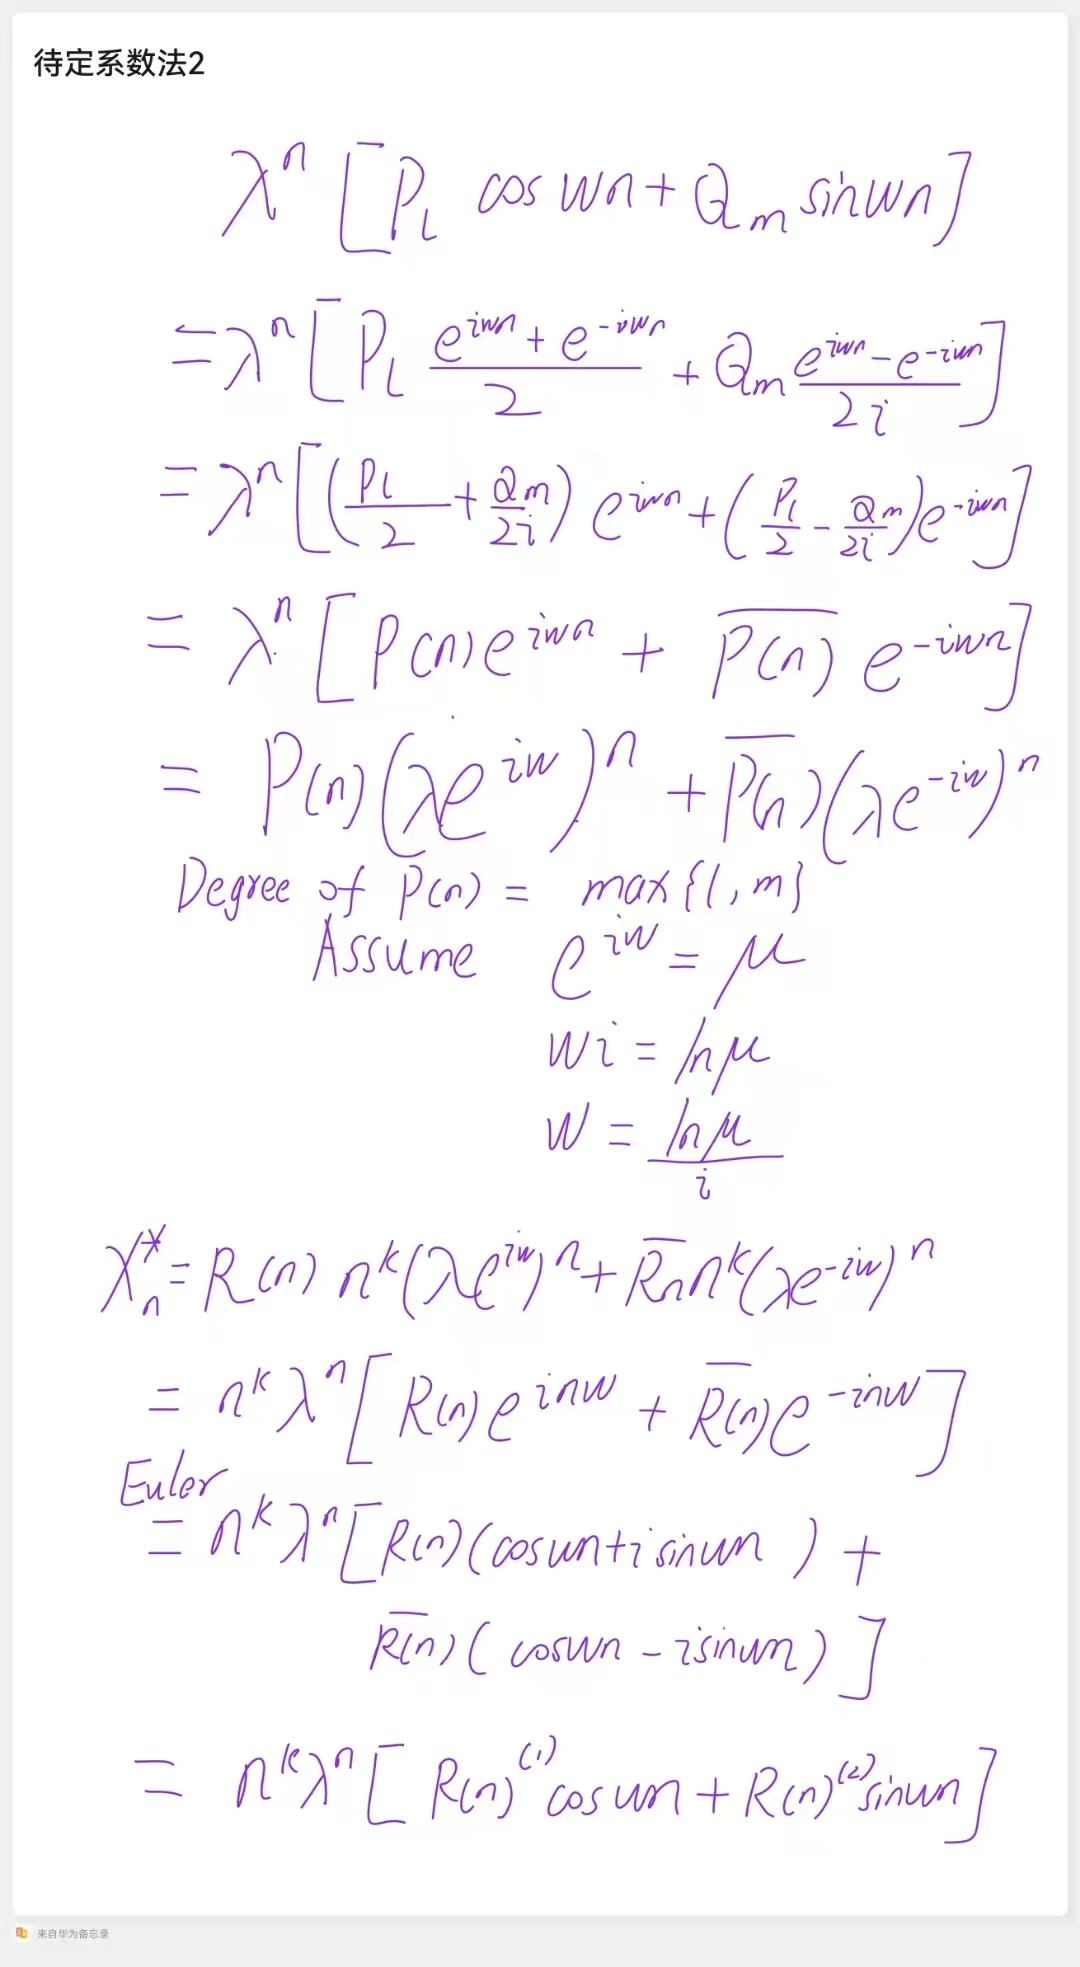 待定系数法2
λⁿ [P_l cos wn + Q_m sin wn]
= λⁿ [P_l (e^{iwn} + e^{-iwn})/2 + Q_m (e^{iwn} - e^{-iwn})/2i]
= λⁿ [(P_l/2 + Q_m/2i) e^{iwn} + (P_l/2 - Q_m/2i) e^{-iwn}]
= λⁿ [P(n) e^{iwn} + \overline{P(n)} e^{-iwn}]
= P(n) (λe^{iw})ⁿ + \overline{P(n)} (λe^{-iw})ⁿ
Degree of P(n) = max{l, m}
Assume e^{iw} = μ
wi = ln μ
w = ln μ / i
X_n^* = R(n) n^k (λe^{iw})ⁿ + \overline{Rn} n^k (λe^{-iw})ⁿ
= n^k λⁿ [R(n) e^{inw} + \overline{R(n)} e^{-inw}]
Euler
= n^k λⁿ [R(n) (cos wn + i sin wn) +
\overline{R(n)} (cos wn - i sin wn)]
= n^k λⁿ [R(n)^{(1)} cos wn + R(n)^{(2)} sin wn]
来自华为备忘录